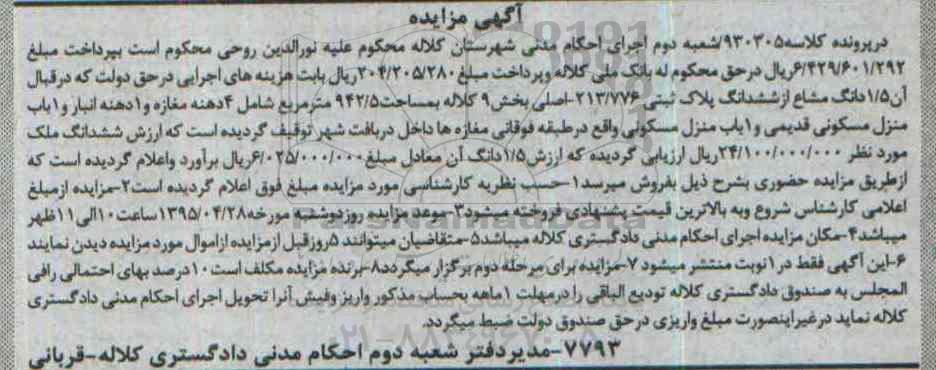 آگهی مزایده
درپرونده کلاسه۹۳۰۳۰۵/شعبه دوم اجرای احکام مدنی شهرستان کلاله محکوم علیه نورالدین روحی محکوم است بپرداخت مبلغ
۶/۴۲۹/۶۰۱/۲۹۲ریال درحق محکوم له بانک ملی کلاله وپرداخت مبلغ۳۰۴/۲۰۵/۲۸۰ریال بابت هزینه های اجرایی درحق دولت که درقبال
آن۱/۵دانگ مشاع ازششدانگ پلاک ثبتی۲۱۳/۷۷۶-اصلی بخش۹ کلاله بمساحت۹۴۲/۵ مترمربع شامل ۴دهنه مغازه و۱دهنه انبار و۱باب
منزل مسکونی قدیمی و۱باب منزل مسکونی واقع درطبقه فوقانی مغازه ها داخل دربافت شهر توقیف گردیده است که ارزش ششدانگ ملک
مورد نظر ۲۴/۱۰۰/۰۰۰/۰۰۰ریال ارزیابی گردیده که ارزش۱/۵دانگ آن معادل مبلغ۶/۰۲۵/۰۰۰/۰۰۰ریال برآورد واعلام گردیده است که
ازطریق مزایده حضوری بشرح ذیل بفروش میرسد۱-حسب نظریه کارشناسی مورد مزایده مبلغ فوق اعلام گردیده است۲-مزایده ازمبلغ
اعلامی کارشناس شروع وبه بالاترین قیمت پشنهادی فروخته میشود۳-موعد مزایده روزدوشنبه مورخه۱۳۹۵/۰۴/۲۸ساعت۱۰الی۱۱ظهر
میباشد۴-مکان مزایده اجرای احکام مدنی دادگستری کلاله میباشد۵-متقاضیان میتوانند ۵روزقبل ازمزایده ازاموال مورد مزایده دیدن نمایند
۶-این آگهی فقط در۱نوبت منتشر میشود ۷-مزایده برای مرحله دوم برگزار میگردد۸-برنده مزایده مکلف است۱۰درصد بهای احتمالی رافی
المجلس به صندوق دادگستری کلاله تودیع الباقی را درمهلت ۱ماهه بحساب مذکور واریز وفیش آنرا تحویل اجرای احکام مدنی دادگستری
کلاله نماید درغیراینصورت مبلغ واریزی درحق صندوق دولت ضبط میگردد.
۷۷۹۳-مدیردفتر شعبه دوم احکام مدنی دادگستری کلاله-قربانی